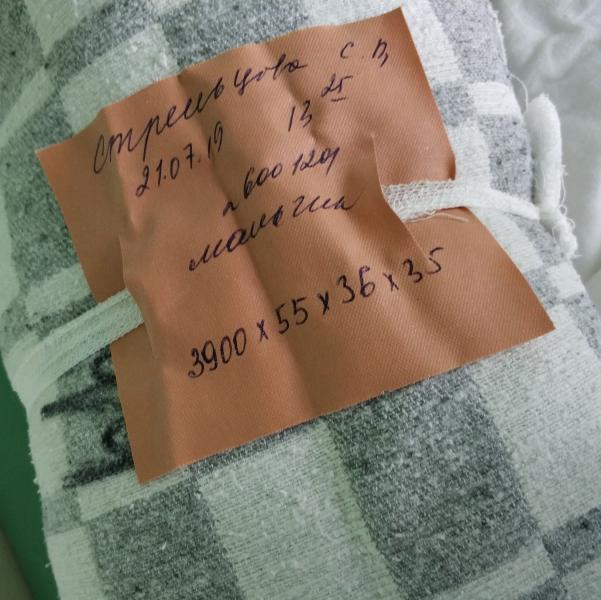 Стрельцова С. В,
21.07.19 13 25
600 1209
мальчик
3900 х 55 х 36 х 35